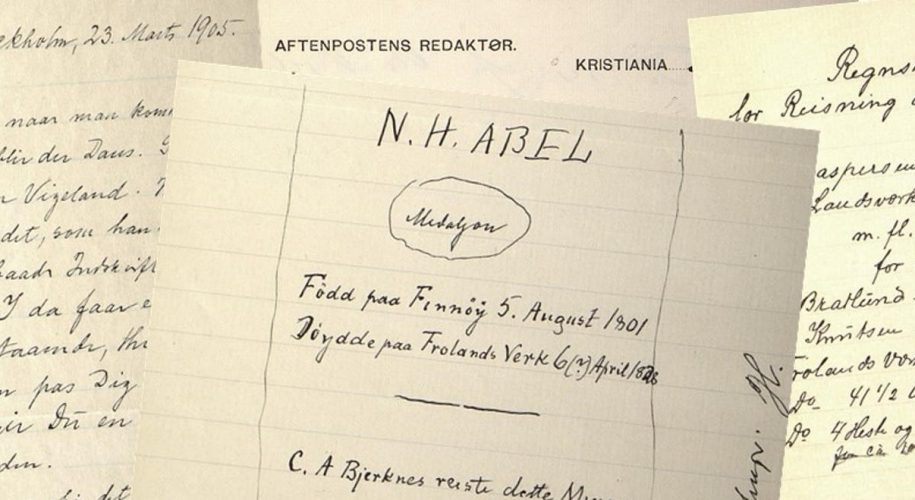 ekholm, 23. Marts 1905.
naar man kom
blir der Daus.
Vigeland.
det, som han
Indskrift
I da faar
pas Dig
Du en
den.
AFTENPOSTENS REDAKTØR.
KRISTIANIA
N. H. ABEL
Medaljon
Född paa Finnöÿ 5. August 1801
Döydde paa Frolands Verk 6(?) April 1828
C. A Bjerknes reiste dette
Regns
for Reisning
aspersen
Landsvork
m. fl.
for
Bratlund
Knutsen
rolands Vor
Do 41 1/2
Do 4 Heste og